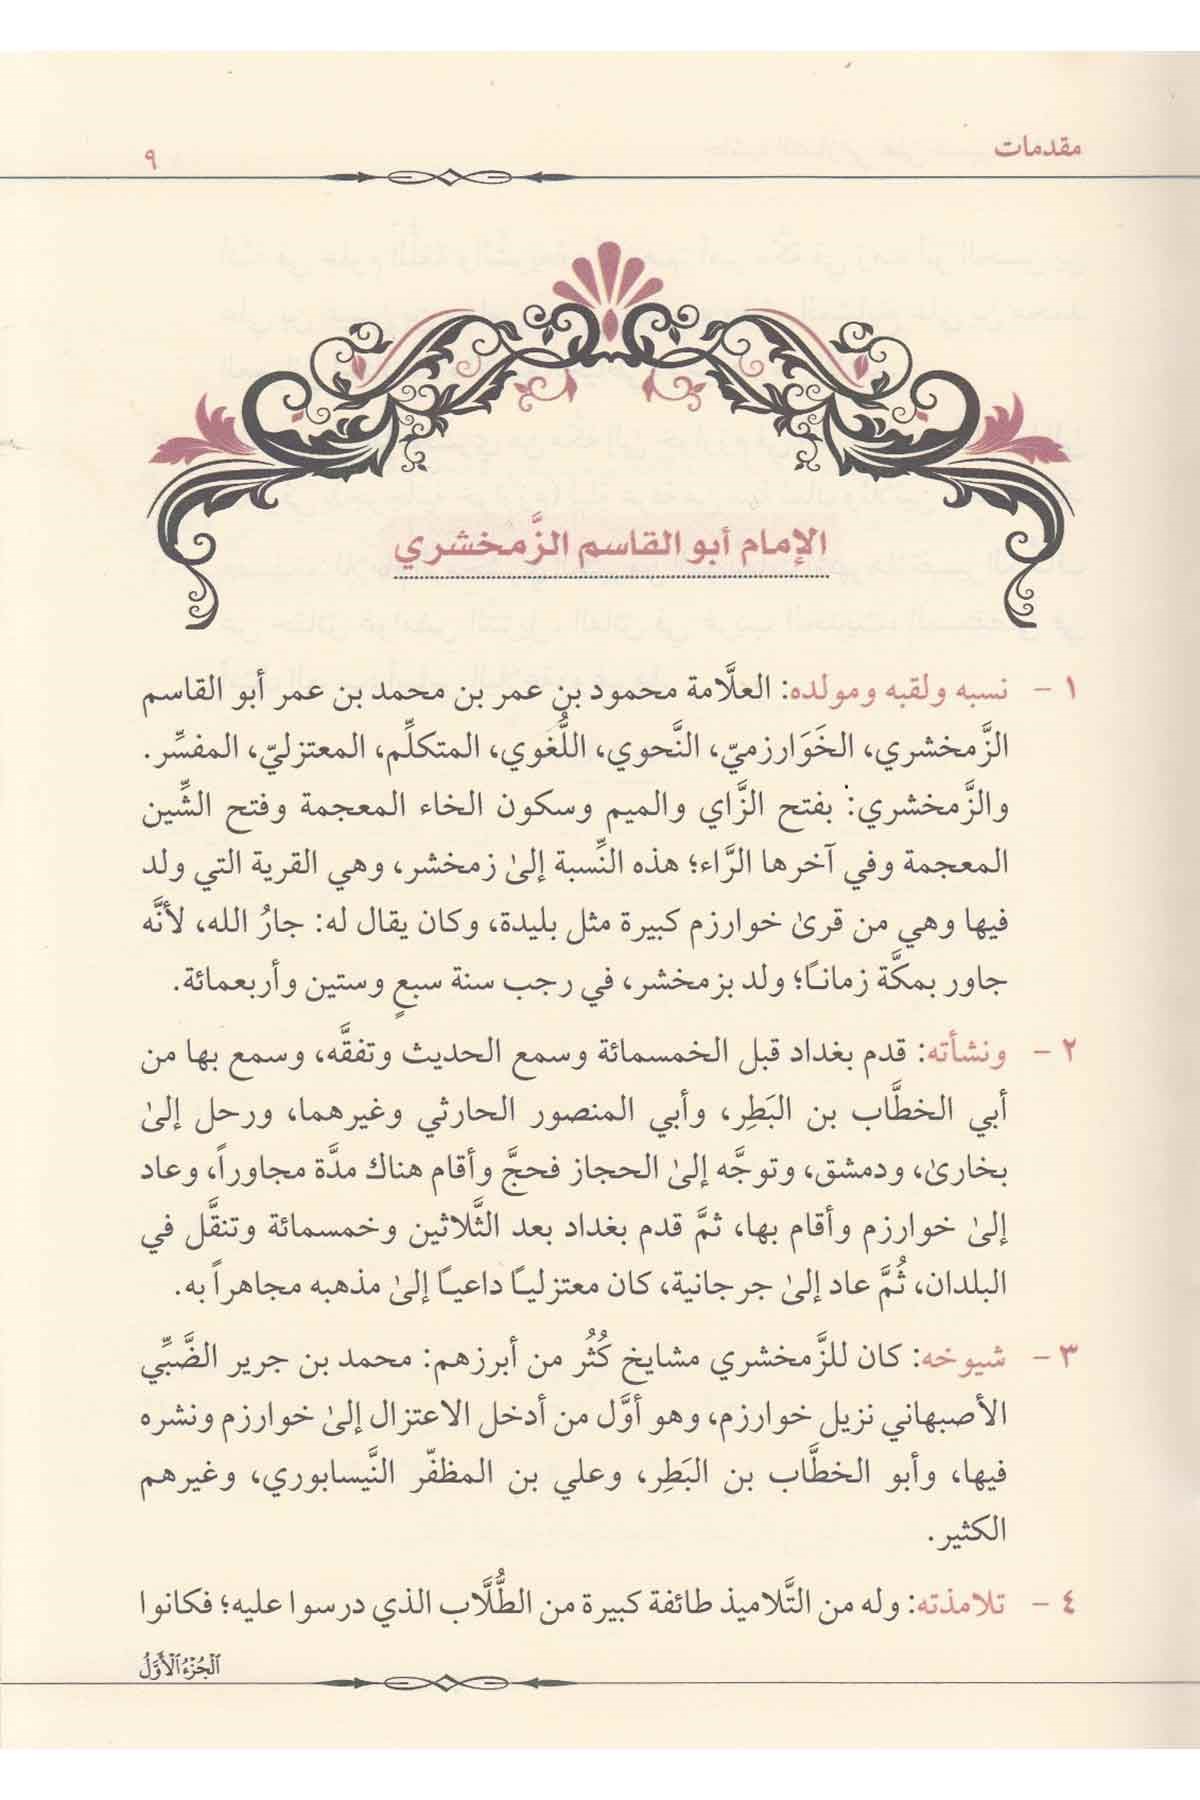 مقدمات
٩
الإمام أبو القاسم الزَّمخشري
١ - نسبه ولقبه ومولده: العلَّامة محمود بن عمر بن محمد بن عمر أبو القاسم
الزَّمخشري، الخَوَارزميّ، النَّحوي، اللُّغوي، المتكلِّم، المعتزليّ، المفسِّر.
والزَّمخشري: بفتح الزَّاي والميم وسكون الخاء المعجمة وفتح الشِّين
المعجمة وفي آخرها الرَّاء؛ هذه النِّسبة إلىٰ زمخشر، وهي القرية التي ولد
فيها وهي من قرىٰ خوارزم كبيرة مثل بليدة، وكان يقال له: جارُ الله، لأنَّه
جاور بمكَّة زمانـًا؛ ولد بزمخشر، في رجب سنة سبعٍ وستين وأربعمائة.
٢ - ونشأته: قدم بغداد قبل الخمسمائة وسمع الحديث وتفقَّه، وسمع بها من
أبي الخطَّاب بن البَطِر، وأبي المنصور الحارثي وغيرهما، ورحل إلىٰ
بخارىٰ، ودمشق، وتوجَّه إلىٰ الحجاز فحجَّ وأقام هناك مدَّة مجاوراً، وعاد
إلىٰ خوارزم وأقام بها، ثمَّ قدم بغداد بعد الثَّلاثين وخمسمائة وتنقَّل في
البلدان، ثُمَّ عاد إلىٰ جرجانية، كان معتزليـًا داعيـًا إلىٰ مذهبه مجاهراً به.
٣ - شيوخه: كان للزَّمخشري مشايخ كُثُر من أبرزهم: محمد بن جرير الضَّبِّي
الأصبهاني نزيل خوارزم، وهو أوَّل من أدخل الاعتزال إلىٰ خوارزم ونشره
فيها، وأبو الخطَّاب بن البَطِر، وعلي بن المظفّر النَّيسابوري، وغيرهم
الكثير.
٤ - تلامذته: وله من التَّلاميذ طائفة كبيرة من الطُّلَّاب الذي درسوا عليه؛ فكانوا
الْجُزْءُ الْأَوَّلُ